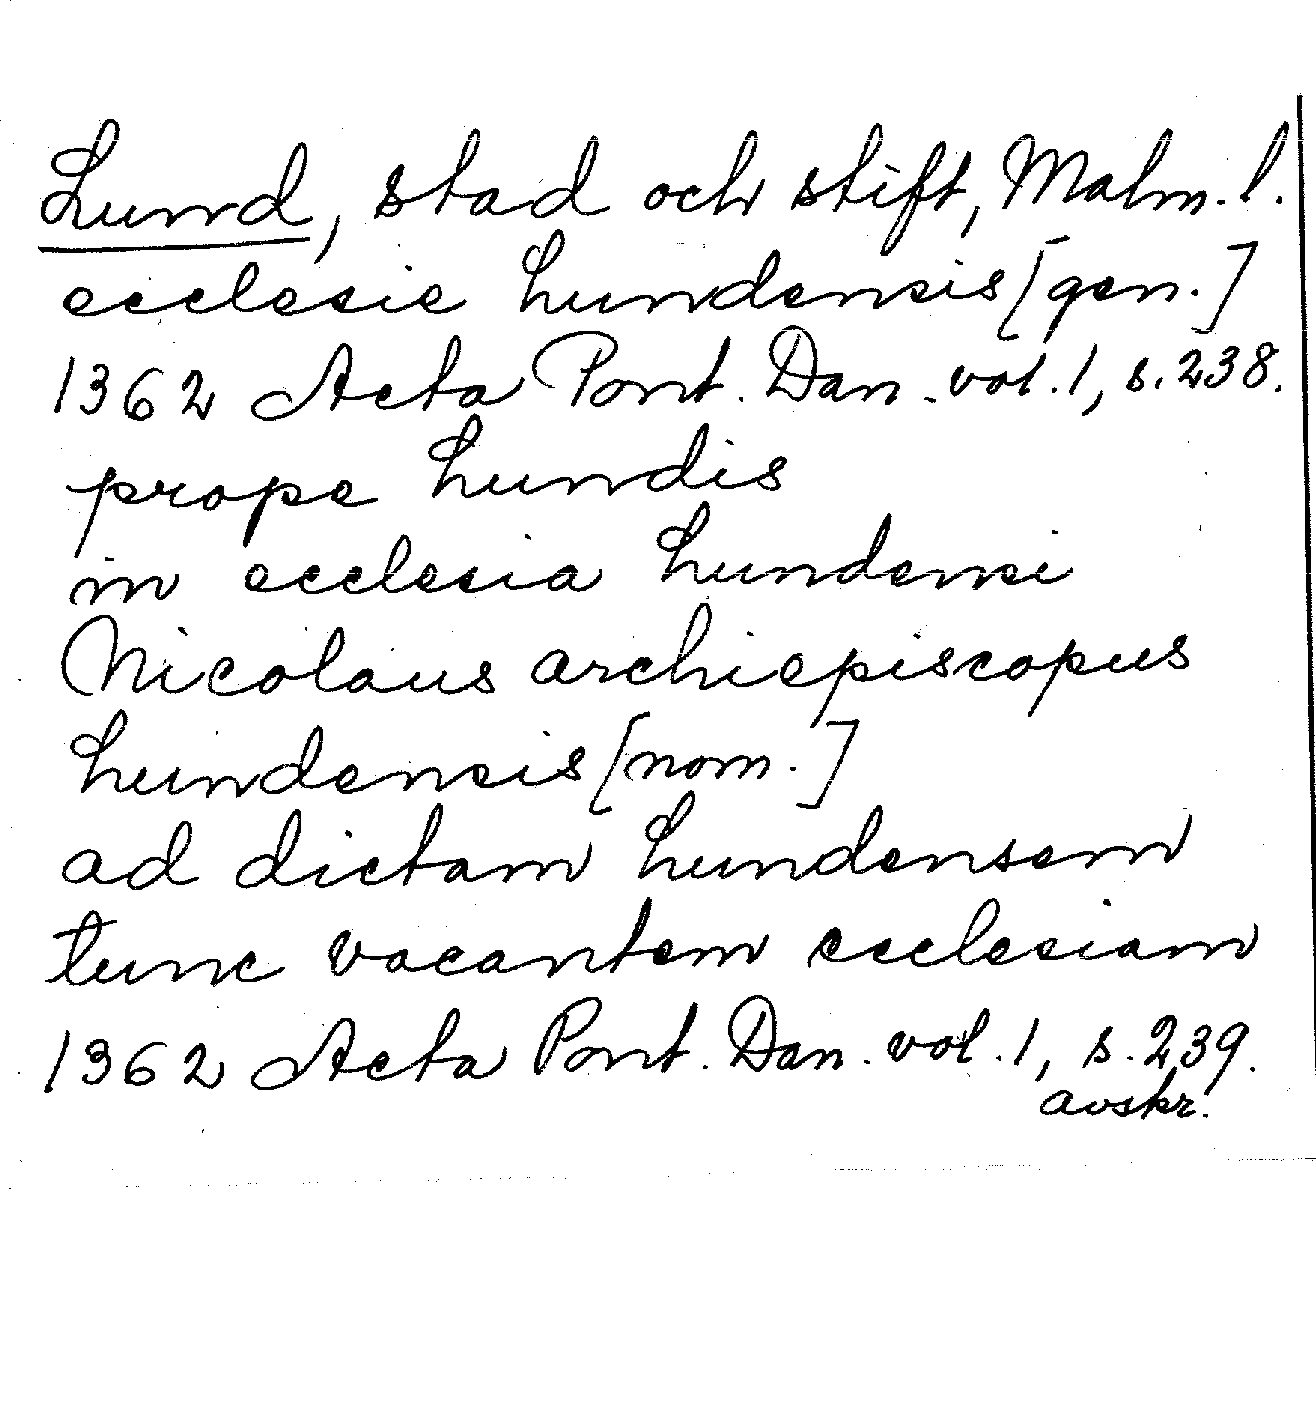 Lund, stad och stift, Malm. l.
ecclesie Lundensis [gen.]
1362 Acta Pont. Dan. vol. 1, s. 238.
prope Lundis
in ecclesia Lundensi
Nicolaus archiepiscopus
Lundensis [nom.]
ad dictam Lundensem
tunc vacantem ecclesiam
1362 Acta Pont. Dan. vol. 1, s. 239.
avskr.